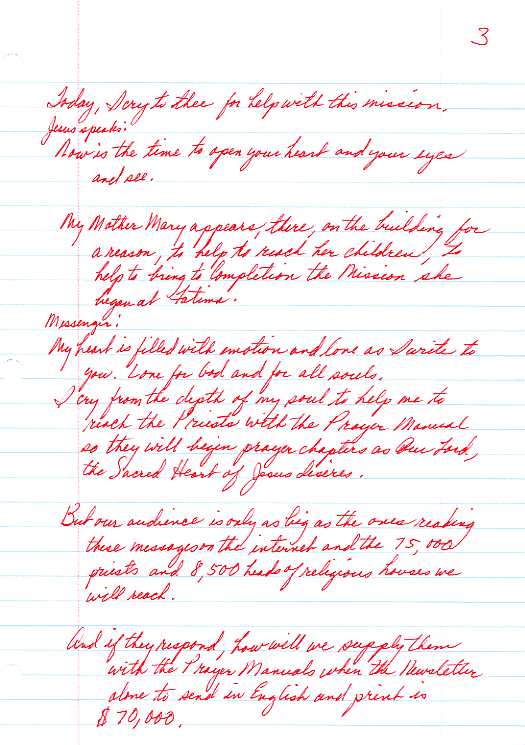 3
Today, I cry to thee for help with this mission.
Jesus speaks:
Now is the time to open your heart and your eyes
and see.
My Mother Mary appears, there, on the building for
a reason, to help to reach her children, to
help to bring to completion the Mission she
began at Fatima.
Messenger:
My heart is filled with emotion and love as I write to
you. Love for God and for all souls.
I cry from the depth of my soul to help me to
reach the Priests with the Prayer Manual
so they will begin prayer chapters as Our Lord,
the Sacred Heart of Jesus desires.
But our audience is only as big as the ones reading
these messages on the internet and the 75,000
priests and 8,500 heads of religious houses we
will reach.
And if they respond, how will we supply them
with the Prayer Manuals when the Newsletter
alone to send in English and print is
$70,000.